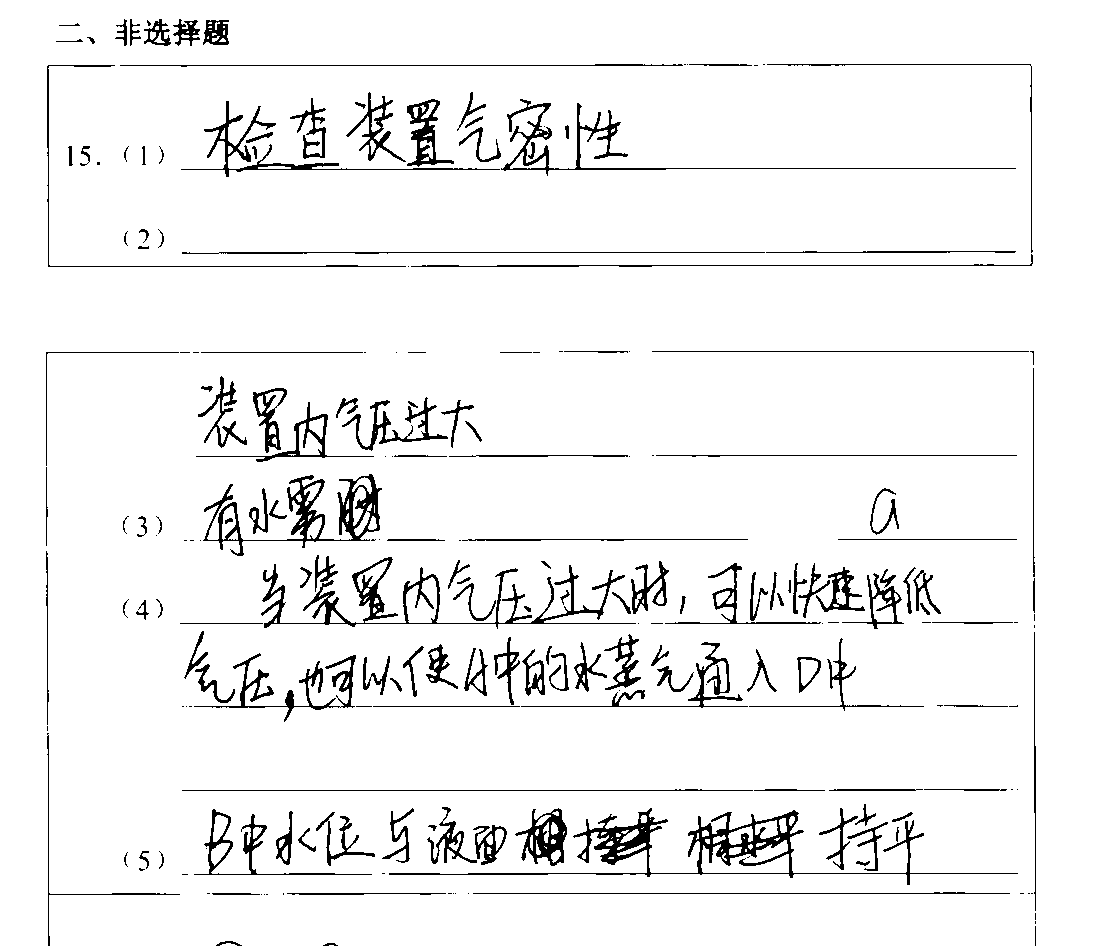 二、非选择题
15.（1）检查装置气密性
（2）
装置内气压过大
（3）有水雾 a
（4）当装置内气压过大时，可以快速降低
气压，也可以使A中的水蒸气通入D中
（5）B中水位与液面持平